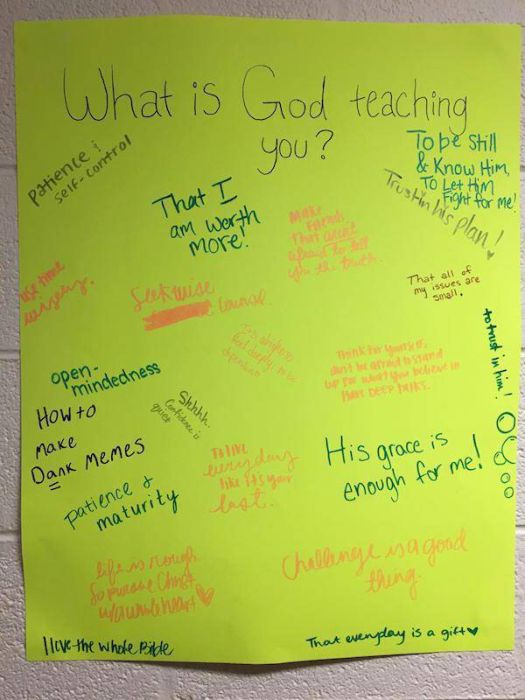 What is God teaching
you?
patience &
self-control
To be Still
& Know Him,
To Let Him
Fight for me!
Trust in his plan!
That I
am worth
more!
Make
friends
that arent
afraid to tell
you the truth.
use time
wisely.
Seek wise
counsel
That all of
my issues are
small.
to trust in him!
Think for yourself,
dont be afraid to stand
up for what you believe in
Have DEEP TALKS.
open-
mindedness
Shhhh.
Confidence is
quiet
How to
make
Dank Memes
To live
everyday
like its your
last.
His grace is
enough for me!
patience &
maturity
life is rough
so pursue Christ
w/ a whole heart
Challenge is a good
thing.
I love the whole Bible
That everyday is a gift